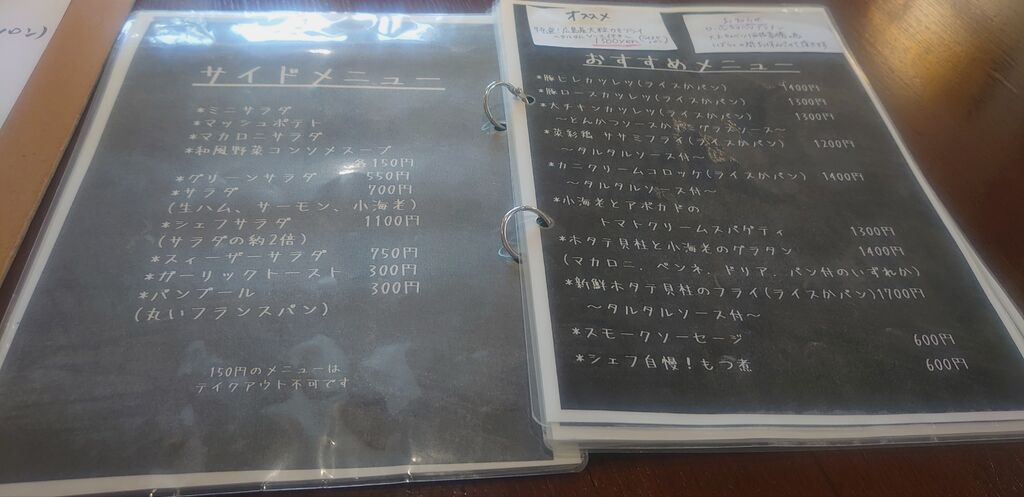 サイドメニュー
*ミニサラダ
*マッシュポテト
*マカロニサラダ
*和風野菜コンソメスープ
各150円
*グリーンサラダ 550円
*サラダ 700円
(生ハム、サーモン、小海老)
*シェフサラダ 1100円
(サラダの約2倍)
*スィーザーサラダ 750円
*ガーリックトースト 300円
*パンブール 300円
(丸いフランスパン)
150円のメニューは
テイクアウト不可です
オススメ
広島産大粒カキフライ
1500yen
おすすめメニュー
*豚ヒレカツレツ(ライスかパン) 1400円
*豚ロースカツレツ(ライスかパン) 1300円
*大チキンカツレツ(ライスかパン) 1300円
～とんかつソースか グラソース～
*菜彩鶏 ササミフライ(ライスかパン) 1200円
～タルタルソース付～
*カニクリームコロッケ(ライスかパン) 1400円
～タルタルソース付～
*小海老とアボカドの
トマトクリームスパゲティ 1300円
*ホタテ貝柱と小海老のグラタン 1400円
(マカロニ、ペンネ、ドリア、パン付のいずれか)
*新鮮ホタテ貝柱のフライ(ライスかパン)1700円
～タルタルソース付～
*スモークソーセージ 600円
*シェフ自慢!もつ煮 600円